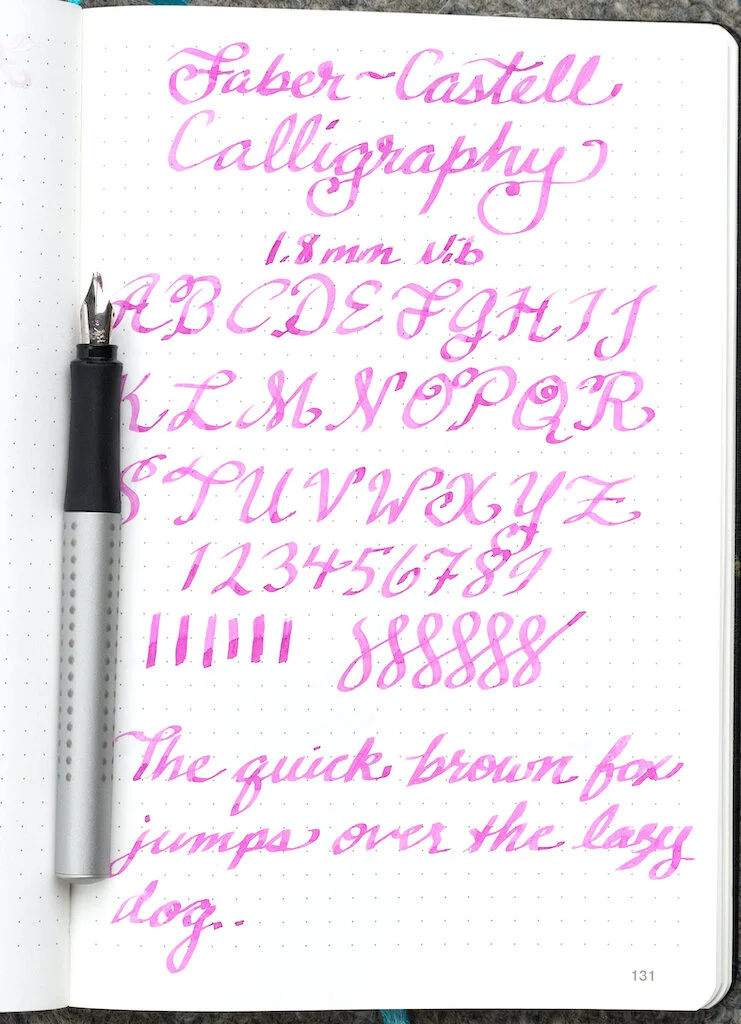 Faber~Castell
Calligraphy
1.8mm Nib
ABCDEFGHIJ
KLMNOPQR
STUVWXYZ
123456789
The quick brown fox
jumps over the lazy
dog..
131